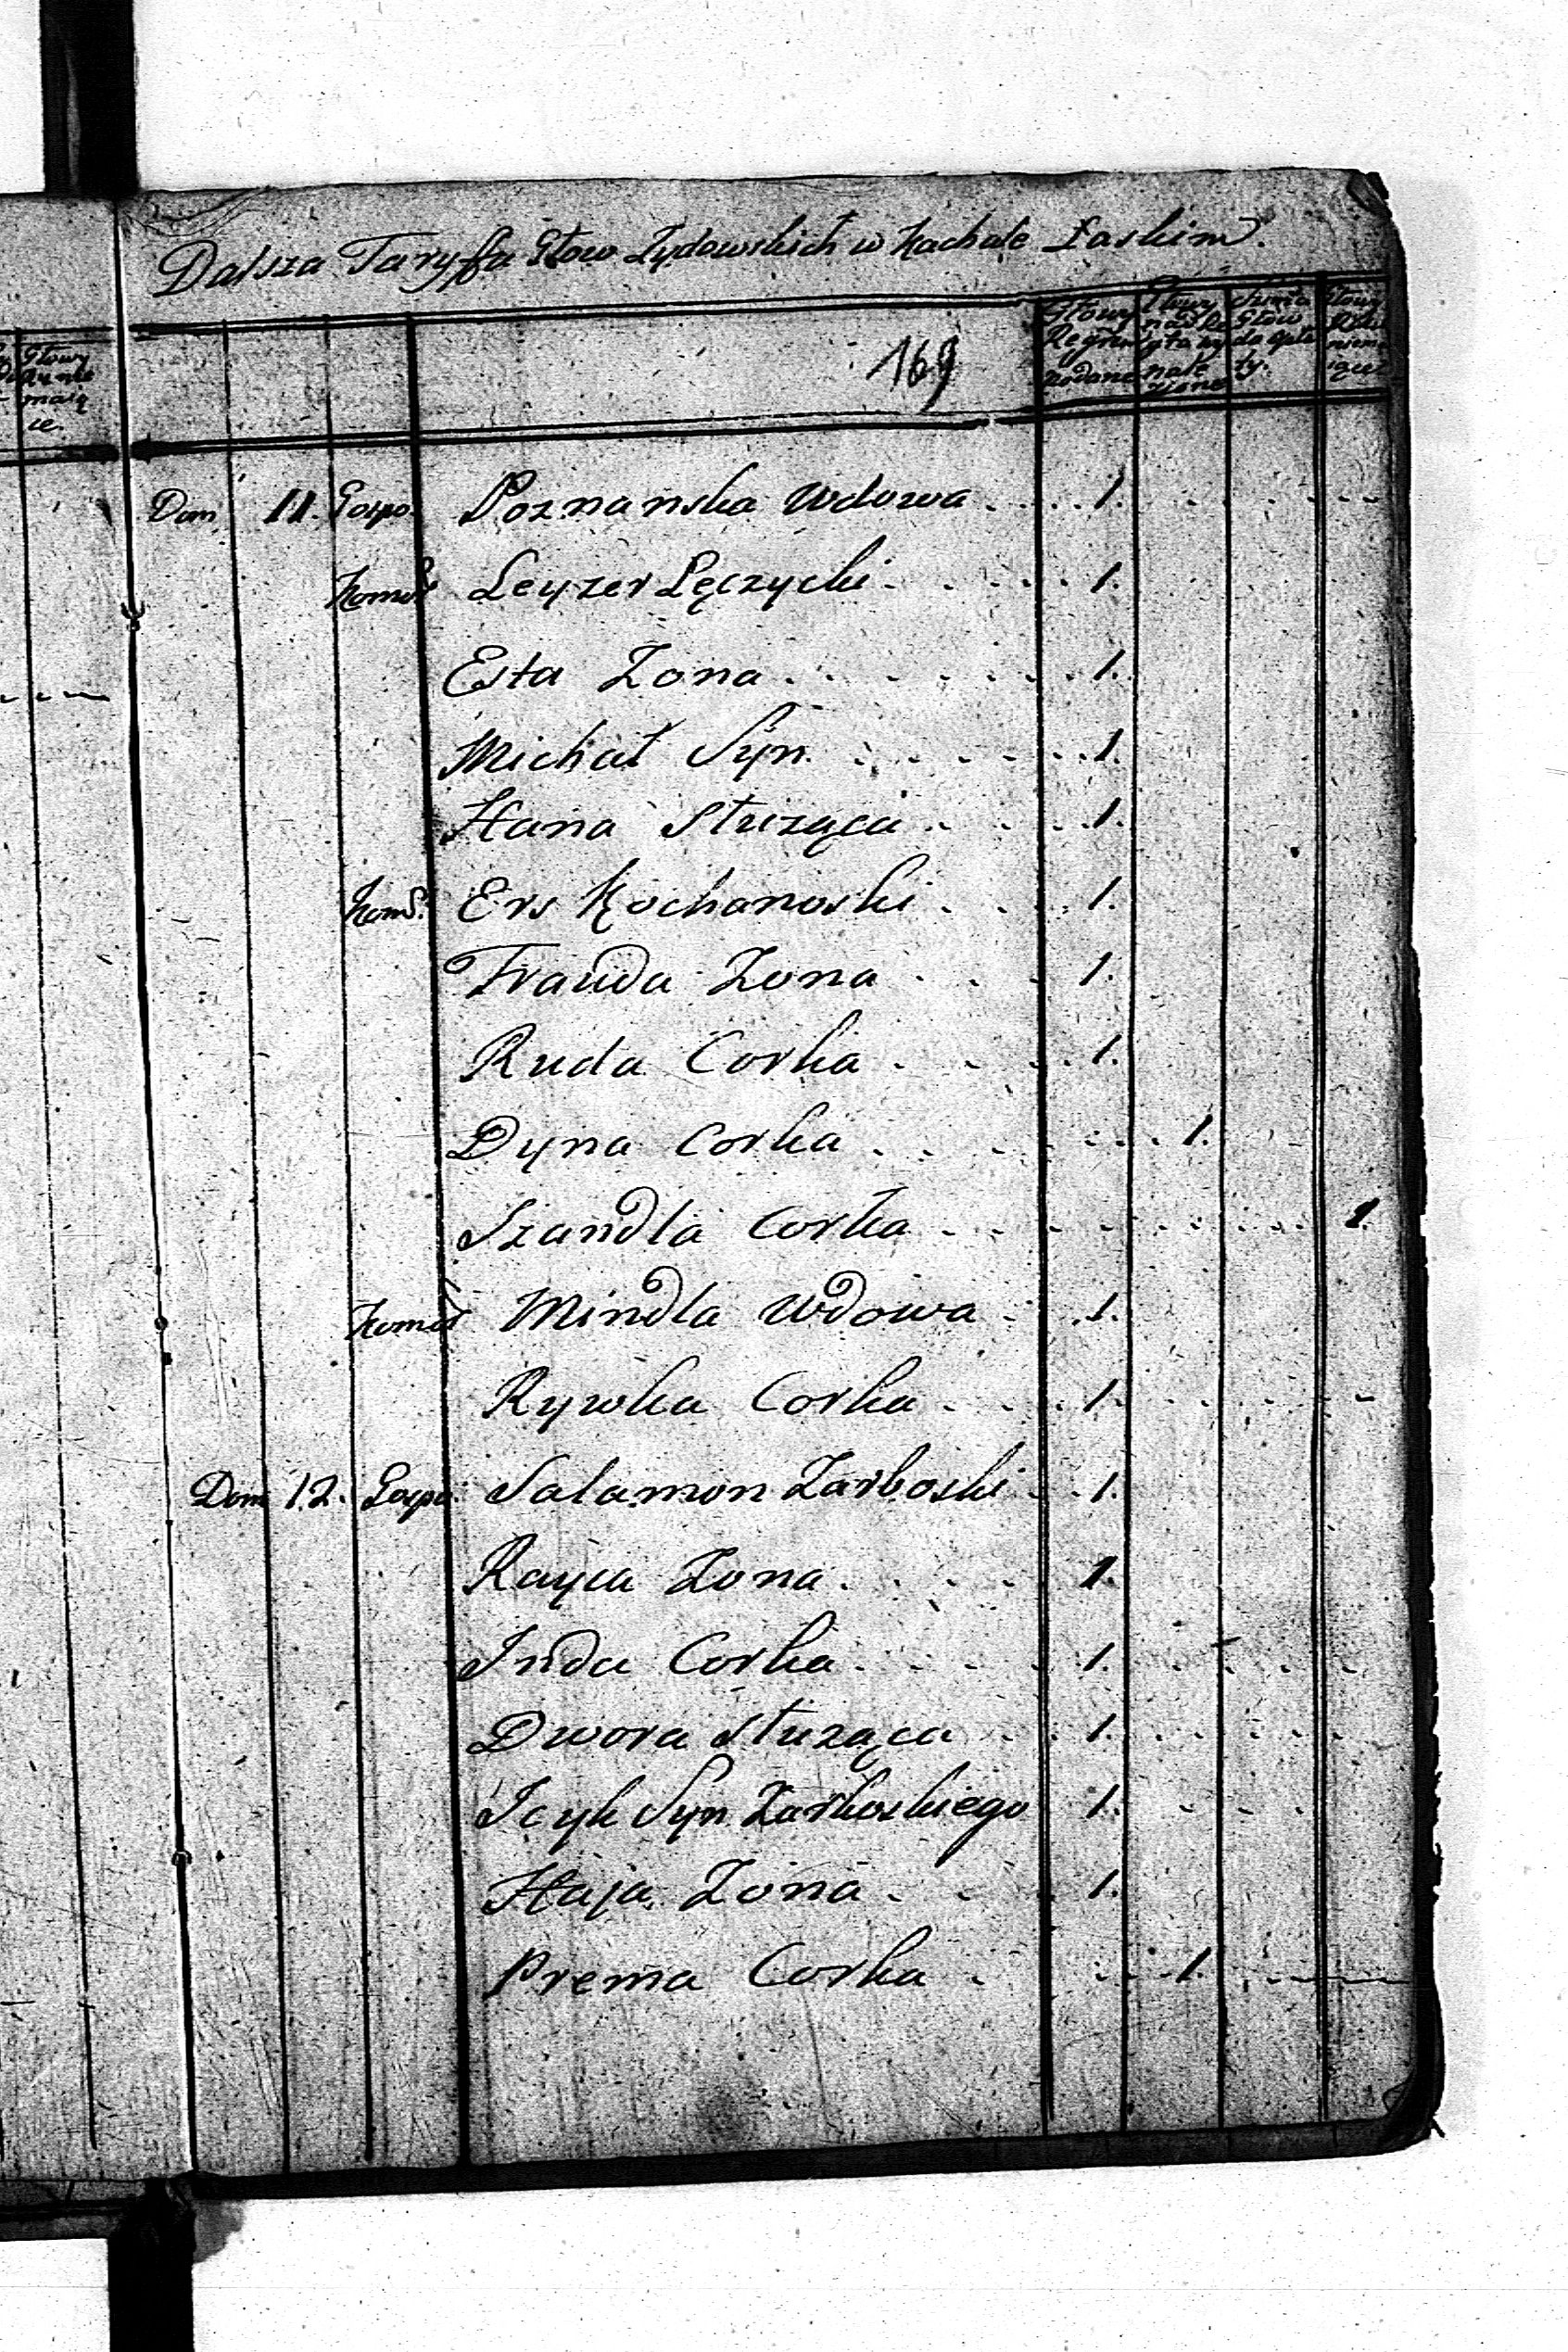 Dalsza Taryffa Głow Zydowskich w Kachale Łaskim.
169
Głowy
maią
ce.
Głowy Głowy Summa Głowy
Głow
podane nale ty.
zione
Dom 11. Gospo. Poznanska Wdowa 1.
Komor Leyzer Lęczycki 1.
Esta Zona 1.
Michał Syn 1.
Hana Służąca 1.
Komor. Ers Kochanoski 1.
Frauda Zona 1.
Ruda Corka 1.
Dyna Corka 1.
Szandla Corka 1.
Komor Mindla Wdowa 1.
Rywka Corka 1.
Dom 12. Gospo. Salamon Zarboski 1.
Rayca Zona 1.
Inda Corka 1.
Dwora Służąca 1.
Icyk Syn Zarboskiego 1.
Haja Zona 1.
Prema Corka 1.